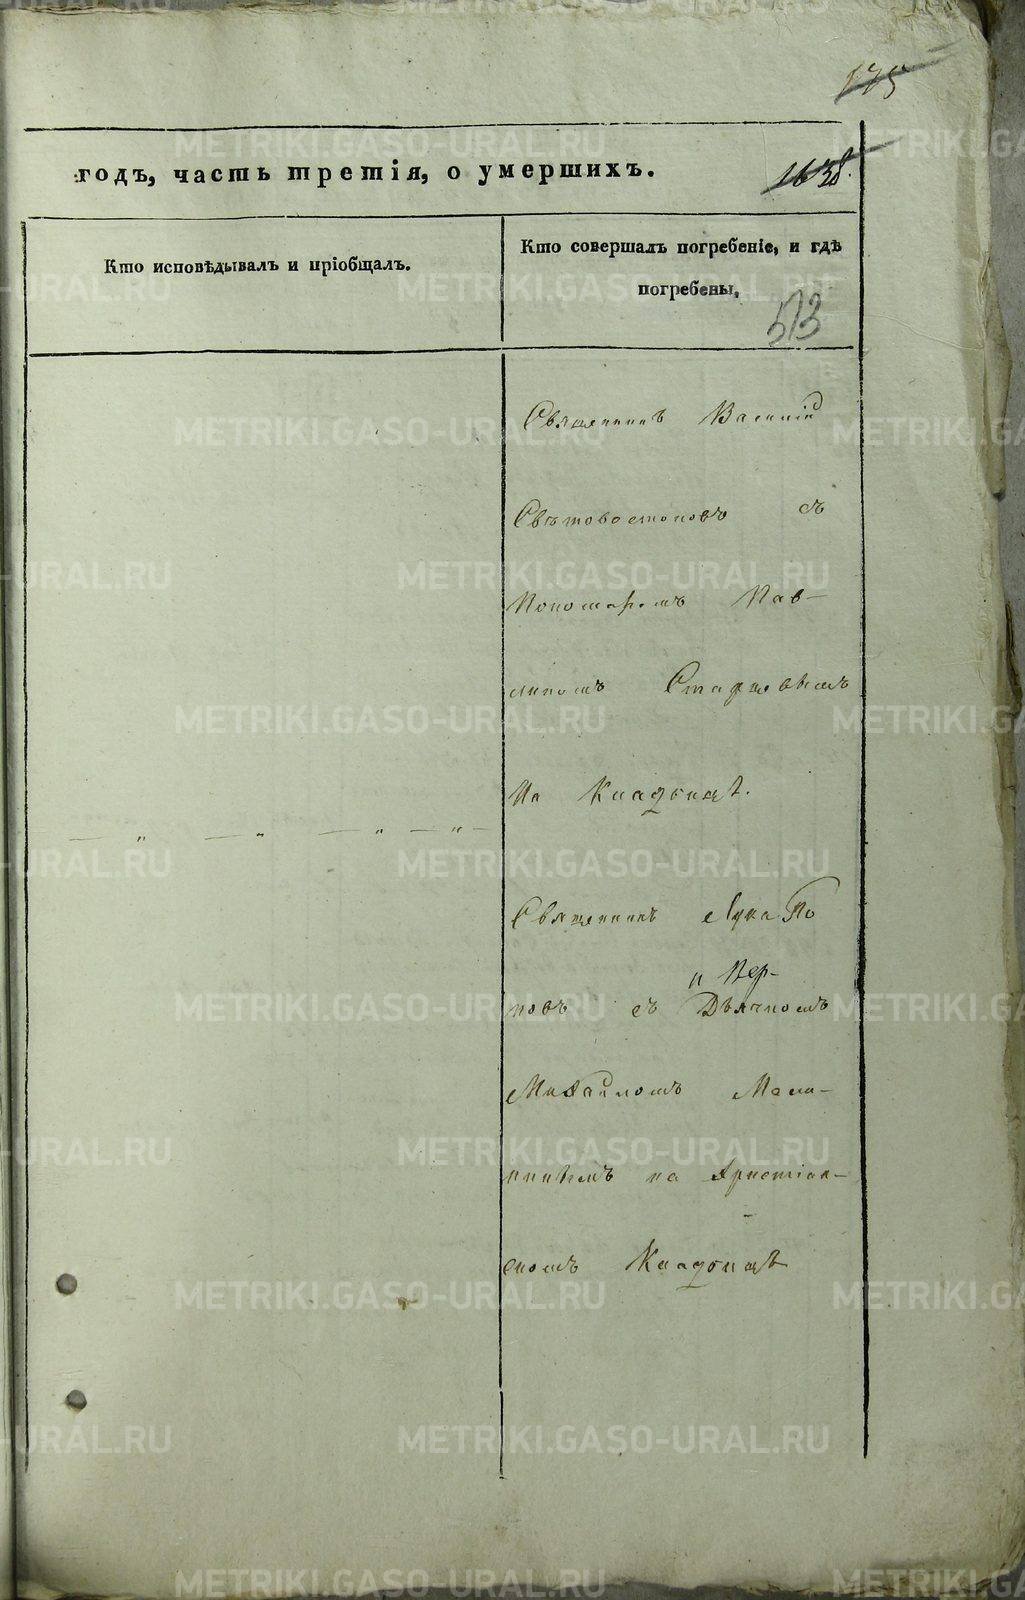 175
годъ, часть третія, о умершихъ.
1638.
Кто исповѣдывалъ и пріобщалъ.
Кто совершалъ погребеніе, и гдѣ
погребены,
573
Священникъ Василій
Свѣтовостоковъ съ
Пономаремъ Пав-
линомъ Стар
На Кладбищѣ.
— „ — „ — „ — „ —
Священникъ Лука По
и Пер-
повъ съ Дьячкомъ
Михаиломъ Мали-
нинымъ на Христіан-
скомъ Кладбищѣ
METRIKI.GASO-URAL.RU